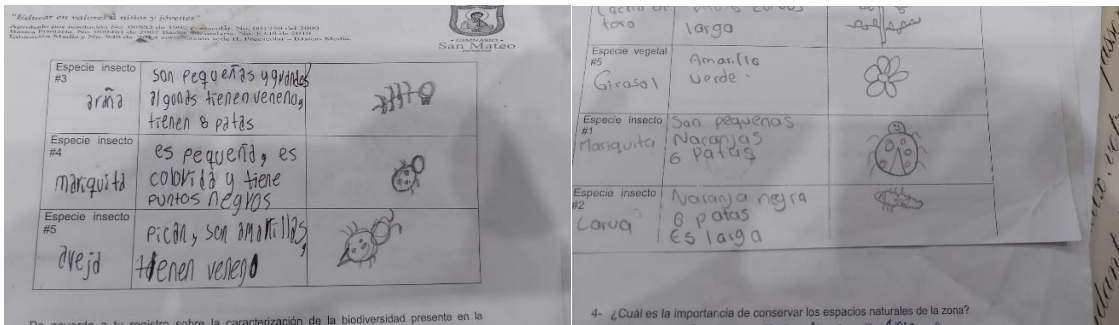 "Educar en valores a niños y jóvenes"
GIMNASIO
San Mateo
Especie insecto
#3
araña
son pequeñas y grandes
algunas tienen veneno,
tienen 8 patas
Especie insecto
#4
mariquita
es pequeña, es
colorida y tiene
puntos negros
Especie insecto
#5
aveja
Pican, son amarillas,
tienen veneno
De acuerdo a tu registro sobre la caracterización de la biodiversidad presente en la
toro
larga
Especie vegetal
#5
Girasol
Amarillo
verde
Especie insecto
#1
Mariquita
Son pequeñas
Naranjas
6 patas
Especie insecto
#2
Larva
Naranja negra
6 patas
Es larga
4- ¿Cuál es la importancia de conservar los espacios naturales de la zona?